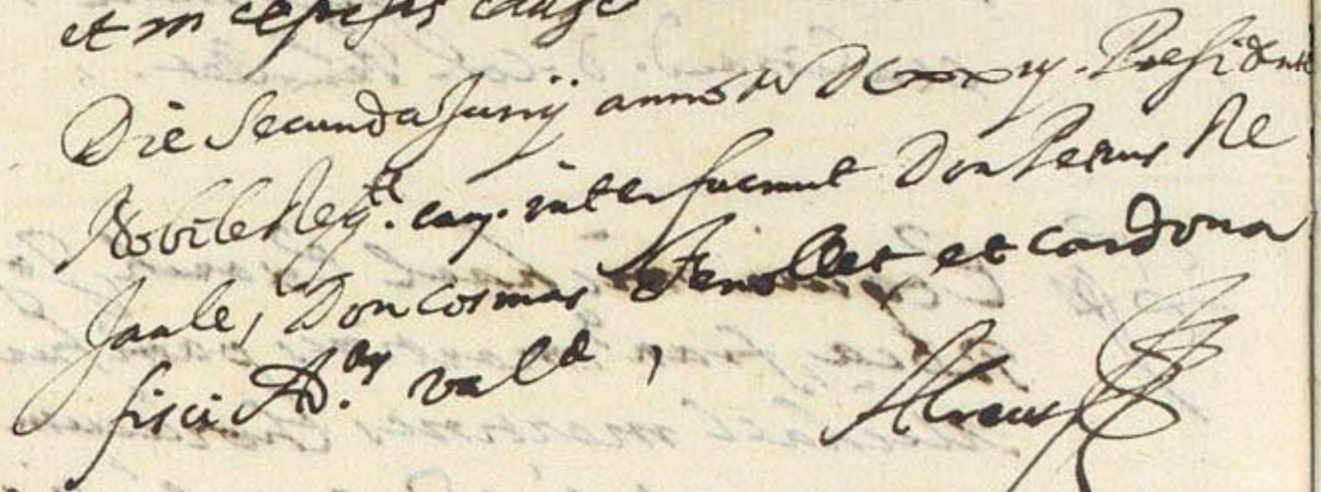 et in
Die secunda Junij anno M DCxxij. Presidente
Nobile Reg.te can. interfuerunt Don Petrus Re
Jaule, Don Cosmas Fenollet et Cardona
fisci Ad.us val.d,